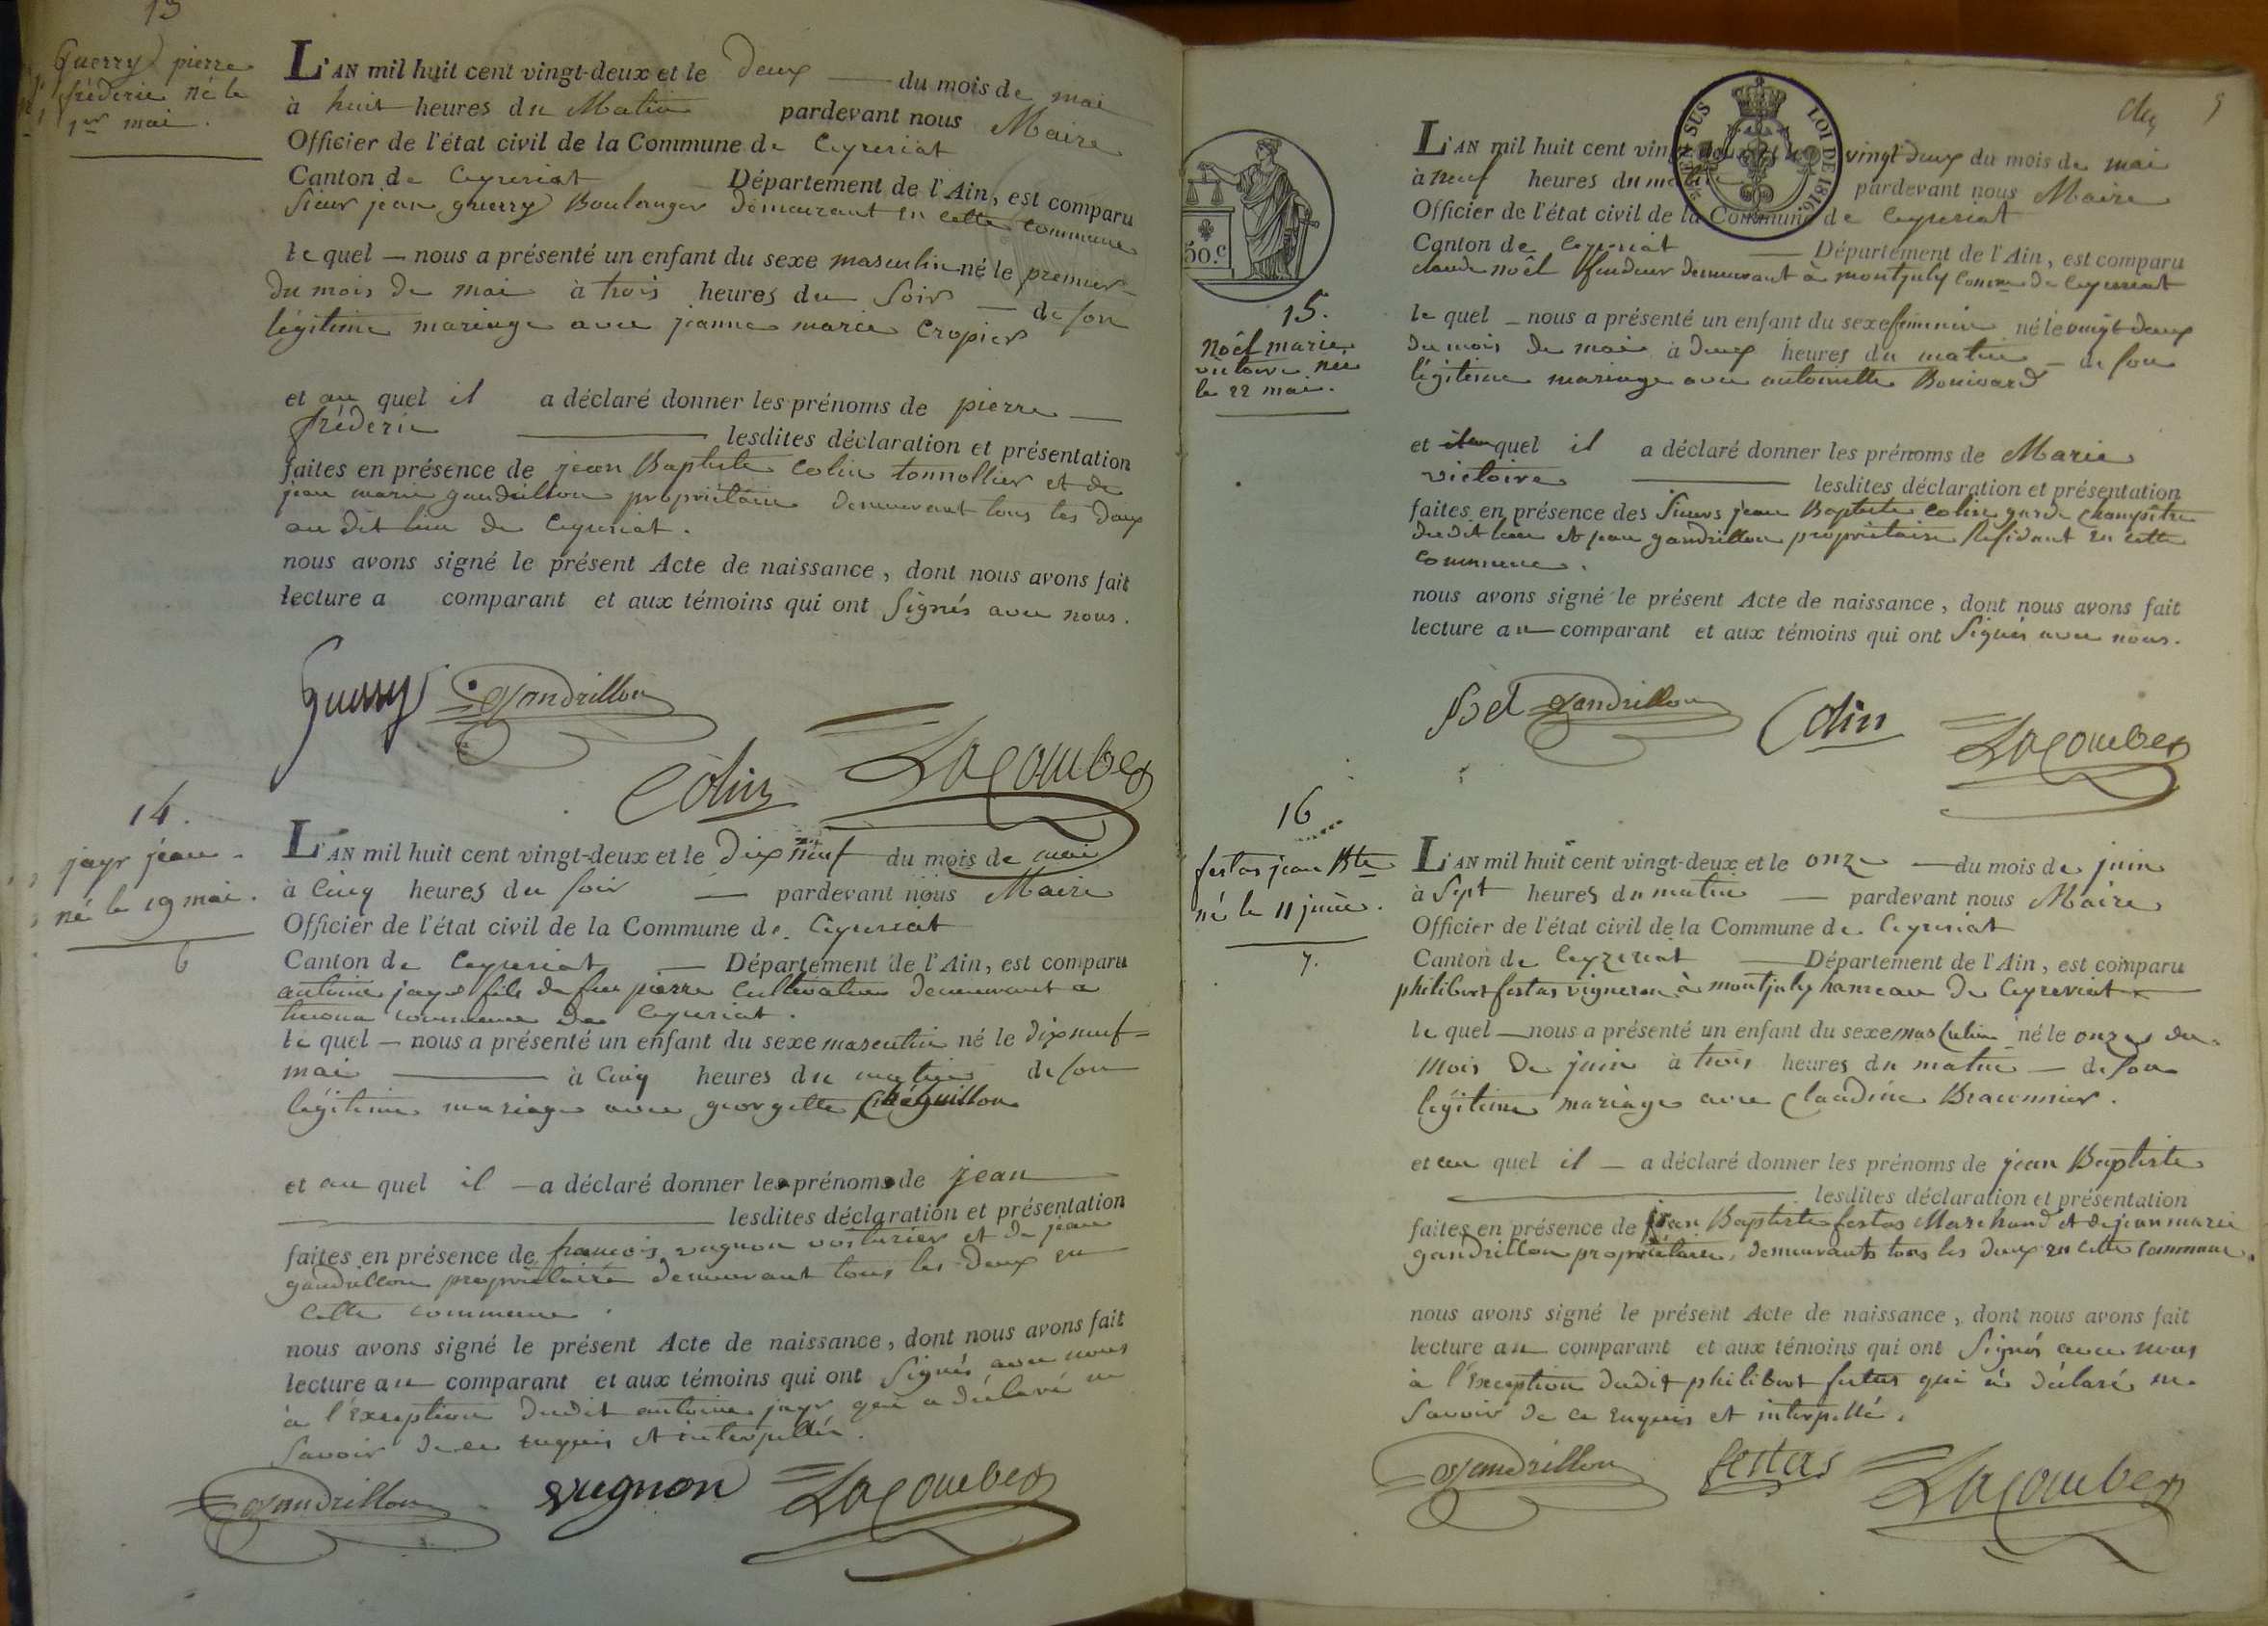 13
Guerry pierre
fréderic né le
1er mai.
L'AN mil huit cent vingt-deux et le deux du mois de mai
à huit heures du Matin pardevant nous Maire
Officier de l'état civil de la Commune de Ceyzeriat
Canton de Ceyzeriat Département de l'Ain, est comparu
Sieur jean guerry Boulanger demeurant en cette commune
le quel nous a présenté un enfant du sexe masculin né le premier
du mois de mai à trois heures du Soir de son
légitime mariage avec jeanne marie Cropier
et au quel il a déclaré donner les prénoms de pierre
fréderic lesdites déclaration et présentation
faites en présence de jean Baptiste Colin tonnollier et de
jean marie gandrillon propriétaire demeurant tous les deux
au dit lieu de Ceyzeriat.
nous avons signé le présent Acte de naissance, dont nous avons fait
lecture a comparant et aux témoins qui ont Signés avec nous.
Guerry Gandrillon
Colin Lacombe
14.
jayr jean
né le 19 mai.
6
L'AN mil huit cent vingt-deux et le dix neuf du mois de mai
à Cinq heures du soir pardevant nous Maire
Officier de l'état civil de la Commune de Ceyzeriat
Canton de Ceyzeriat Département de l'Ain, est comparu
antoine jayr fils de feu pierre Cultivateur demeurant a
commune de Ceyzeriat.
le quel nous a présenté un enfant du sexe masculin né le dix neuf
mai à Cinq heures du matin de son
légitime mariage avec georgette
et au quel il a déclaré donner les prénoms de jean
lesdites déclaration et présentation
faites en présence de francois vugnon voiturier et de jean
gandrillon propriétaire demeurant tous les deux en
cette commune.
nous avons signé le présent Acte de naissance, dont nous avons fait
lecture au comparant et aux témoins qui ont Signés avec nous
à l'Exception dudit antoine jayr qui a déclaré ne
Savoir de ce enquis et interpellé.
Gandrillon vugnon Lacombe
TIMBRE SUS LOI DE 1816
50.c
5
15.
Noël marie
victoire née
le 22 mai.
L'AN mil huit cent vingt-deux et le vingt deux du mois de mai
à neuf heures du matin pardevant nous Maire
Officier de l'état civil de la Commune de Ceyzeriat
Canton de Ceyzeriat Département de l'Ain, est comparu
claude noël demeurant à montjuly Comne de Ceyzeriat
le quel nous a présenté un enfant du sexe féminin né le vingt deux
du mois de mai à deux heures du matin de son
légitime mariage avec antoinette Bouvard
et au quel il a déclaré donner les prénoms de Marie
victoire lesdites déclaration et présentation
faites en présence des Sieurs jean Baptiste Colin garde champêtre
dudit lieu et jean gandrillon propriétaire Résidant en cette
commune.
nous avons signé le présent Acte de naissance, dont nous avons fait
lecture au comparant et aux témoins qui ont Signés avec nous.
Gandrillon Colin Lacombe
16
festas jean Bte
né le 11 juin.
7.
L'AN mil huit cent vingt-deux et le onze du mois de juin
à Sept heures du matin pardevant nous Maire
Officier de l'état civil de la Commune de Ceyzeriat
Canton de Ceyzeriat Département de l'Ain, est comparu
philibert festas vigneron à montjuly hameau de Ceyzeriat
le quel nous a présenté un enfant du sexe masculin né le onze du
mois de juin à trois heures du matin de son
légitime mariage avec Claudine Braconnier.
et au quel il a déclaré donner les prénoms de jean Baptiste
lesdites déclaration et présentation
faites en présence de jean Baptiste festas Marchand et de jean marie
gandrillon propriétaire, demeurants tous les deux en cette commune.
nous avons signé le présent Acte de naissance, dont nous avons fait
lecture au comparant et aux témoins qui ont Signés avec nous
à l'Exception dudit philibert festas qui a déclaré ne
Savoir de ce enquis et interpellé.
Gandrillon festas Lacombe